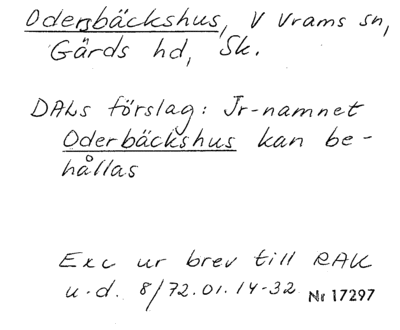 Odersbäckshus, V Vrams sn,
Gärds hd, Sk.
DALs förslag: Jr-namnet
Oderbäckshus kan be-
hållas
Exc ur brev till RAK
u.d. 8/72.01.14-32 Nr 17297